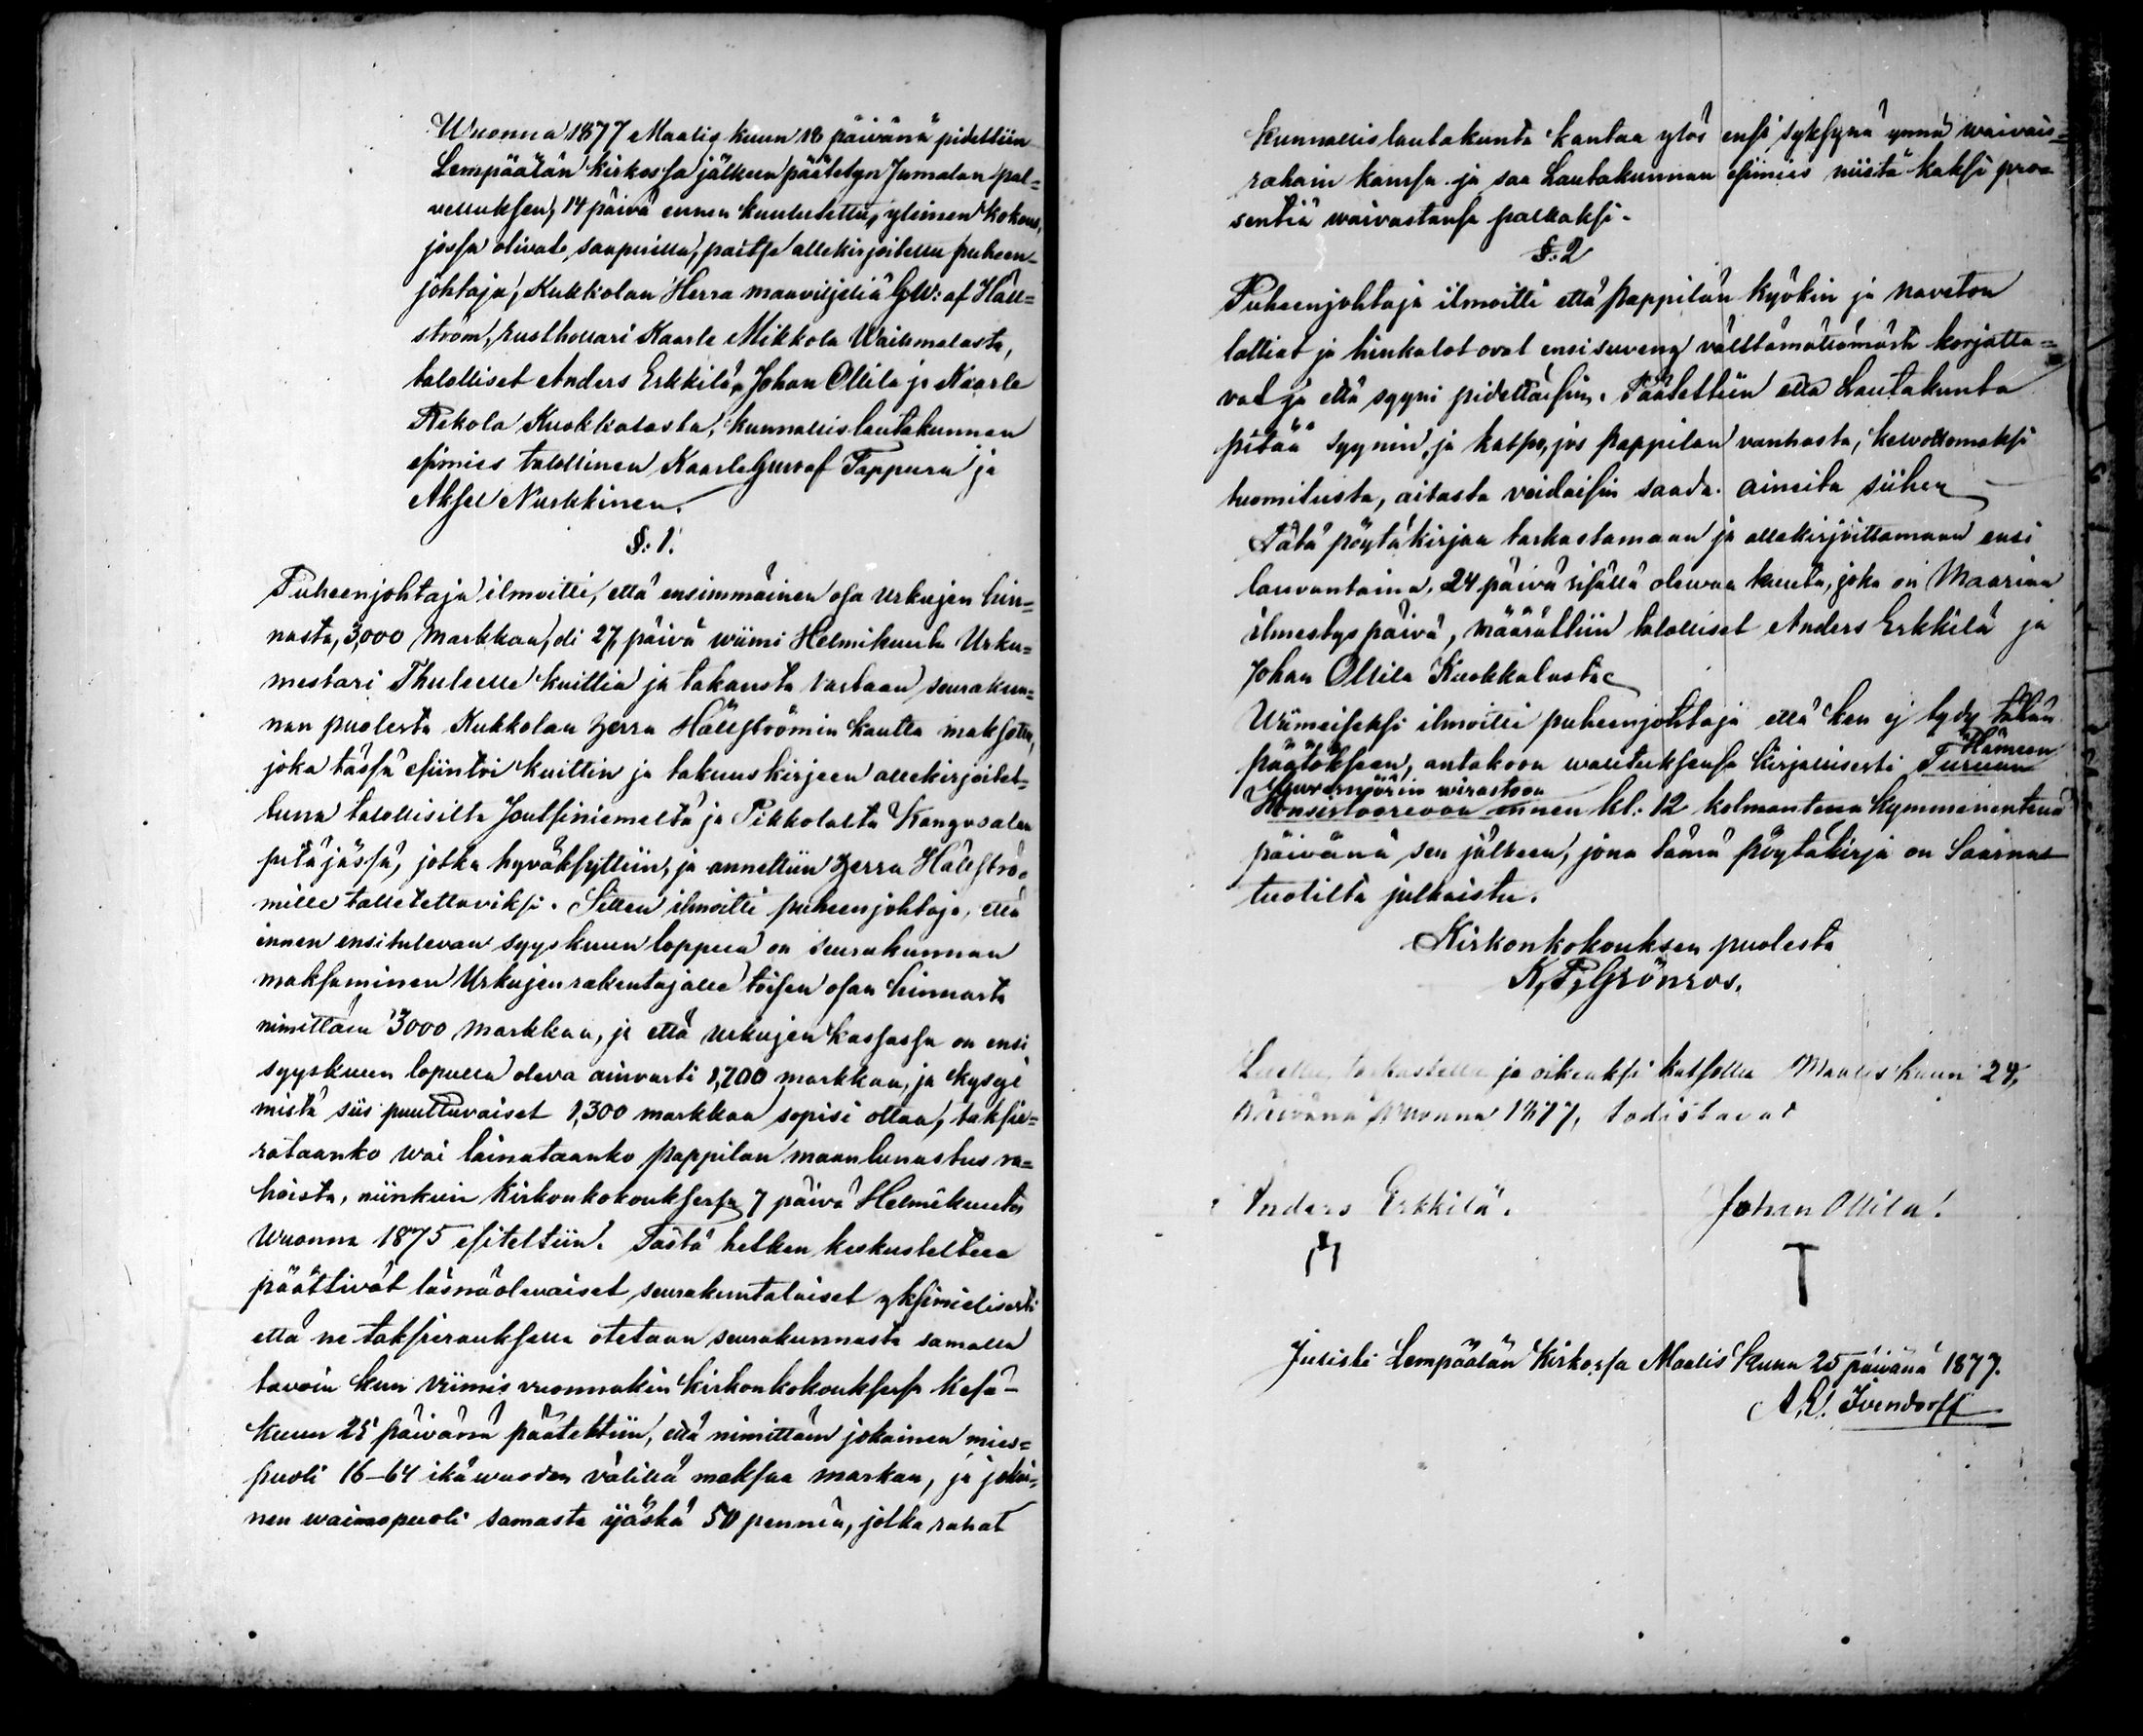 Wuonna 1877 Maalis kuun 18 päivänä pidettiin
Lempäälän kirkossa jälkeen päätetyn Jumalan pal=
velluksen, 14 päivä ennen kuulutettu, yleinen kokous,
jossa olivat saapuvilla, paitse allekirjoitettu puheen-
johtaja, Kukkolan Herra maaviljeliä G.W: af Häll=
ström, rusthollari Kaarle Mikkola Waihmalasta,
talolliset Anders Erkkilä, Johan Ollila ja Kaarle
Rekola Kuokkalasta, kunnallislautakunnan
esimies talollinen Kaarle Gustaf Tappura ja
Aksel Nurkkinen.
§. 1.
Puheenjohtaja ilmoitti, että ensimmäinen osa Urkujen hin=
nasta, 3,000 markkaa, oli 27, päivä wiimi Helmikuuta Urku=
mestari Thulelle kuittia ja takausta vastaan seurakun=
nan puolesta Kukkolan Herra Hällströmin kautta maksettu,
joka tässä esiintoi kuittin ja takuus kirjeen allekirjoitet=
tuna talollisilta Joutsiniemeltä ja Pikkolalta Kangasalan
pitäjässä, jotka hyväksyttiin, ja annettiin Herra Hällströ=
mille talletettaviksi. Sitten ilmoitti puheenjohtaja, että
innen ensitulevan syyskuun loppua on seurakunnan
maksaminen Urkujen rakentajalle toisen osan hinnasta
nimittäin 3000 markkaa, ja että urkujen kassassa on ensi
syyskuun lopulla oleva ainoasti 1,700 markkaa, ja kysyi
mistä siis puuttuvaiset 1,300 markkaa sopisi ottaa, taksee=
rataanko wai lainataanko pappilan maanlunastus ra=
hoista, niinkuin Kirkonkokouksessa 7 päivä Helmikuuta
Wuonna 1875 esiteltiin. Tästä hetken keskusteltua
päättivät läsnäolevaiset seurakuntalaiset yksimielisesti
että ne taksierauksella otetaan seurakunnasta samalla
tavoin kuin viimis vuonnakin kirkonkokouksessa Kesä-
kuun 25 päivänä päätettiin, että nimittäin jokainen mies=
puoli 16-64 ikäwuoden välillä maksaa markan, ja jokai=
nen waimopuoli samasta ijästä 50 penniä, jotka rahat
kunnallislautakunta kantaa ylös ensi syksynä ynnä waivais=
rahain kanssa ja saa Lautakunnan esimies niistä kaksi pro
sentiä waivastansa palkaksi.
§. 2
Puheenjohtaja ilmoitti että pappilan kyökin ja naveton
lattiat ja hinkalot ovat ensi suvena välttämättömästi korjatta=
vat ja että syyni pidettäisiin. Päätettiin että Lautakunta
pitää syynin ja katsoo, jos pappilan vanhasta, kelvottomaksi
tuomitusta, aitasta voidaisiin saada aineita siihen
Tätä pöytäkirjaa tarkastamaan ja allekirjoittamaan ensi
lauvantaina, 24 päivä sisällä olevaa kuuta, joka on Maarian
ilmestys päivä, määrättiin talolliset Anders Erkkilä ja
Johan Ollila Kuokkalasta
Wiimeiseksi ilmoitti puheenjohtaja että ken ej tydy tähän
päätökseen, antakoon walituksensa kirjallisesti Turuun
Hämeen
Guvernöörin wirastoon
Konsistoorioon ennen kl: 12 kolmantena kymmenentenä
päivänä sen jälkeen, jona tämä pöytäkirja on Saarnas
tuolilta julkaistu.
Kirkonkokouksen puolesta
K. P. Grönros.
Luettu, tarkastettu ja oikeaksi katsottu Maaliskuun 24,
päivänä Wuonna 1877, todistavat
Anders Erkkilä. Johan Ollila.
Julisti Lempäälän Kirkossa Maalis kuun 25 päivänä 1877.